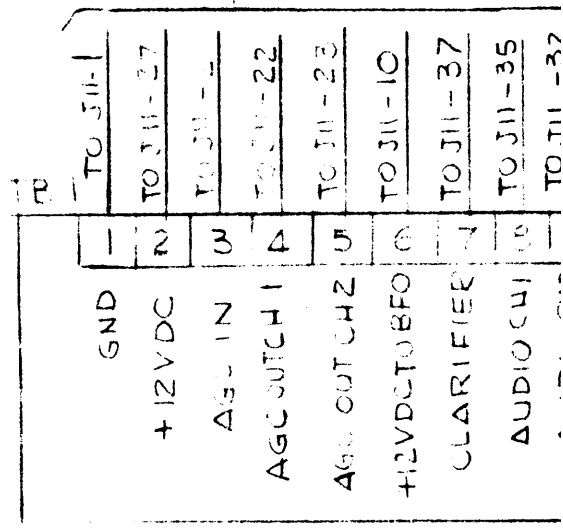 TO J11-1
TO J11-27
TO J11-22
TO J11-23
TO J11-10
TO J11-37
TO J11-35
1 2 3 4 5 6 7 8
GND
+12VDC
AGC IN
AGC OUT CH1
AGC OUT CH2
+12VDC TO BFO
CLARIFIER
AUDIO CH1